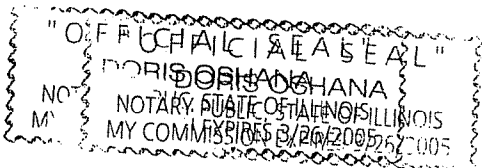 "OFFICIAL SEAL"
DORIS OSHANA
NOTARY PUBLIC STATE OF ILLINOIS
MY COMMISSION EXPIRES 3/26/2005